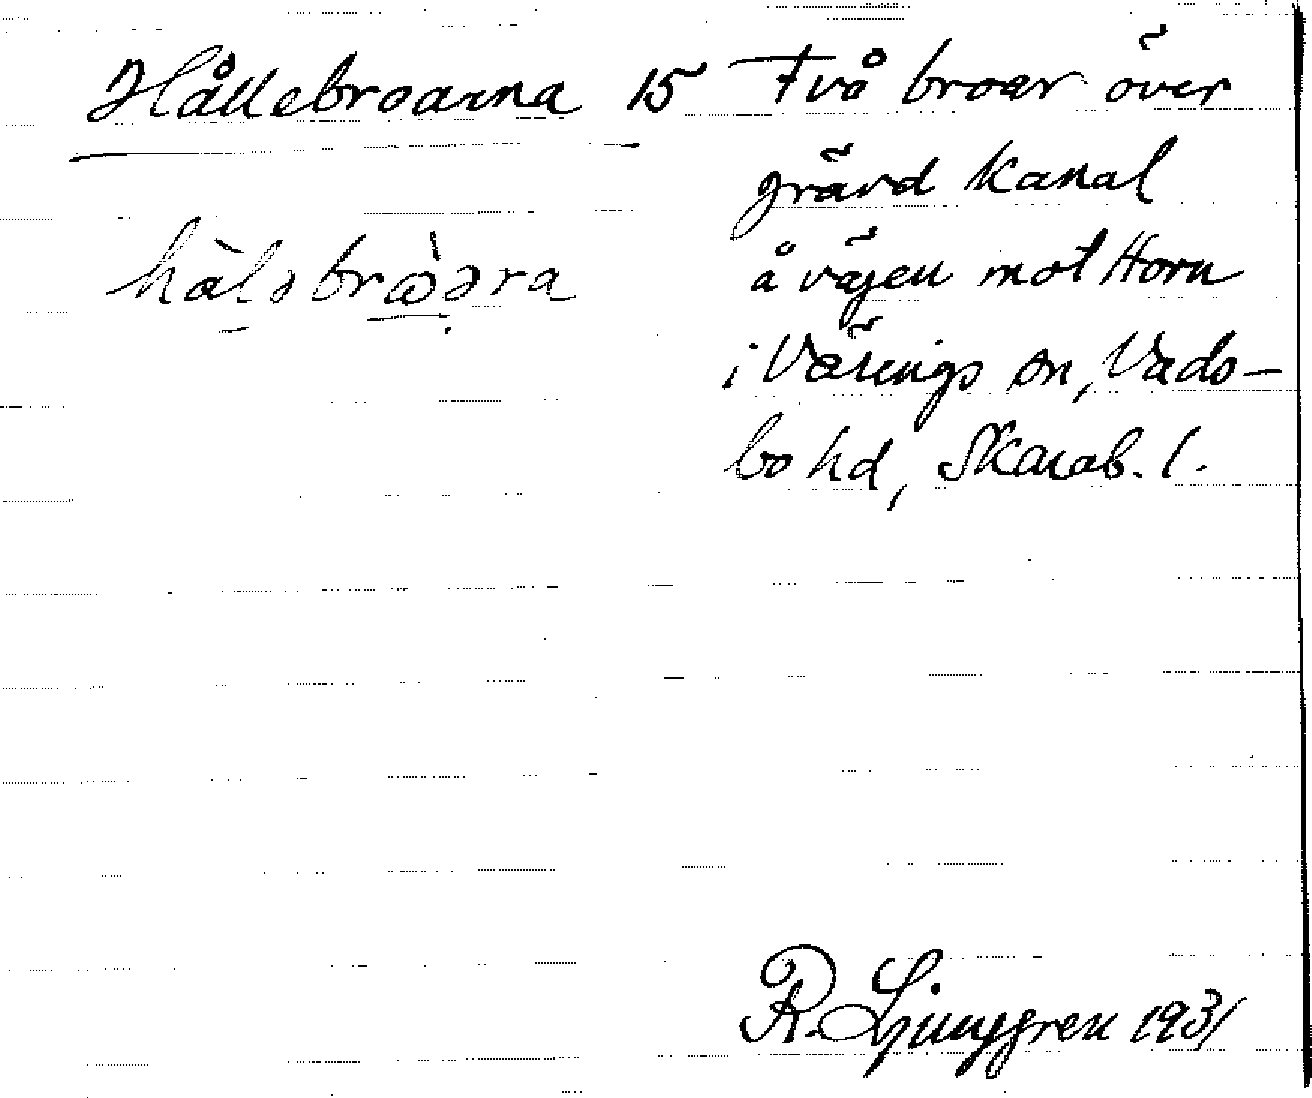 Hållebroarna 15 Två broar över
grävd kanal
hålәbrωәra å vägen mot Horn
i Värings sn, Vads-
bo hd, Skarab. l.
R. Ljunggren 1931